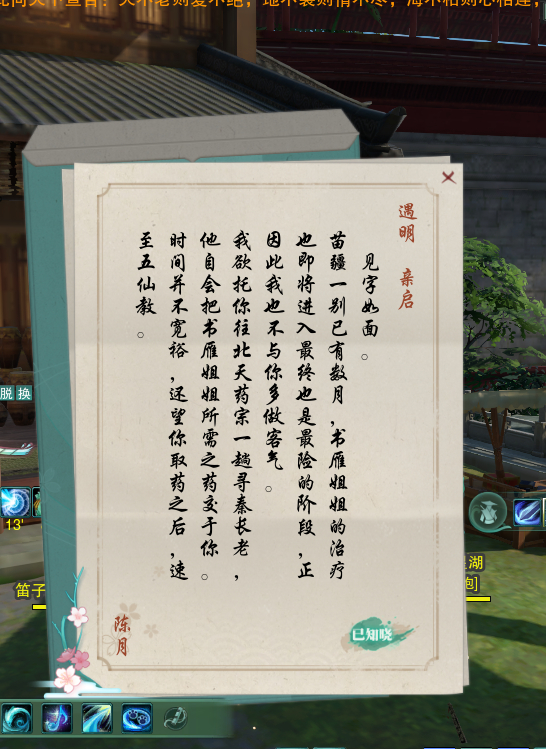 此问天不容否：天不老则爱不绝，地不裂则情不尽，海不枯则心相连，
遇明 亲启
见字如面。
苗疆一别已有数月，书雁姐姐的治疗
也即将进入最终也是最险的阶段，正
因此我也不与你多做客气。
我欲托你往北天药宗一趟寻秦长老，
他自会把书雁姐姐所需之药交于你。
时间并不宽裕，还望你取药之后，速
至五仙教。
陈月
已知晓
脱 换
13'
笛子
湖